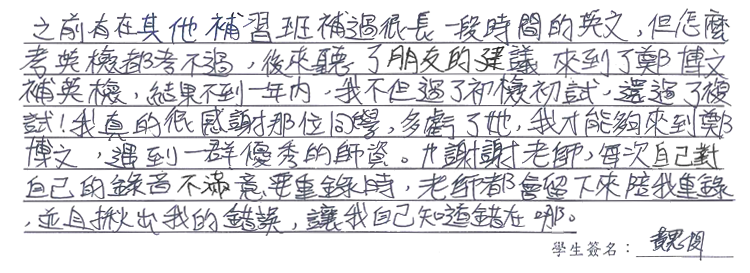 之前有在其他補習班補過很長一段時間的英文,但怎麼
考英檢都考不過,後來聽了朋友的建議來到了鄭博文
補英檢,結果不到一年內,我不但過了初檢初試,還過了複
試!我真的很感謝那位同學,多虧了她,我才能夠來到鄭
博文,遇到一群優秀的師資。也謝謝老師,每次自己對
自己的錄音不滿意要重錄時,老師都會留下來陪我重錄
,並且揪出我的錯誤,讓我自己知道錯在哪。
學生簽名:黃思